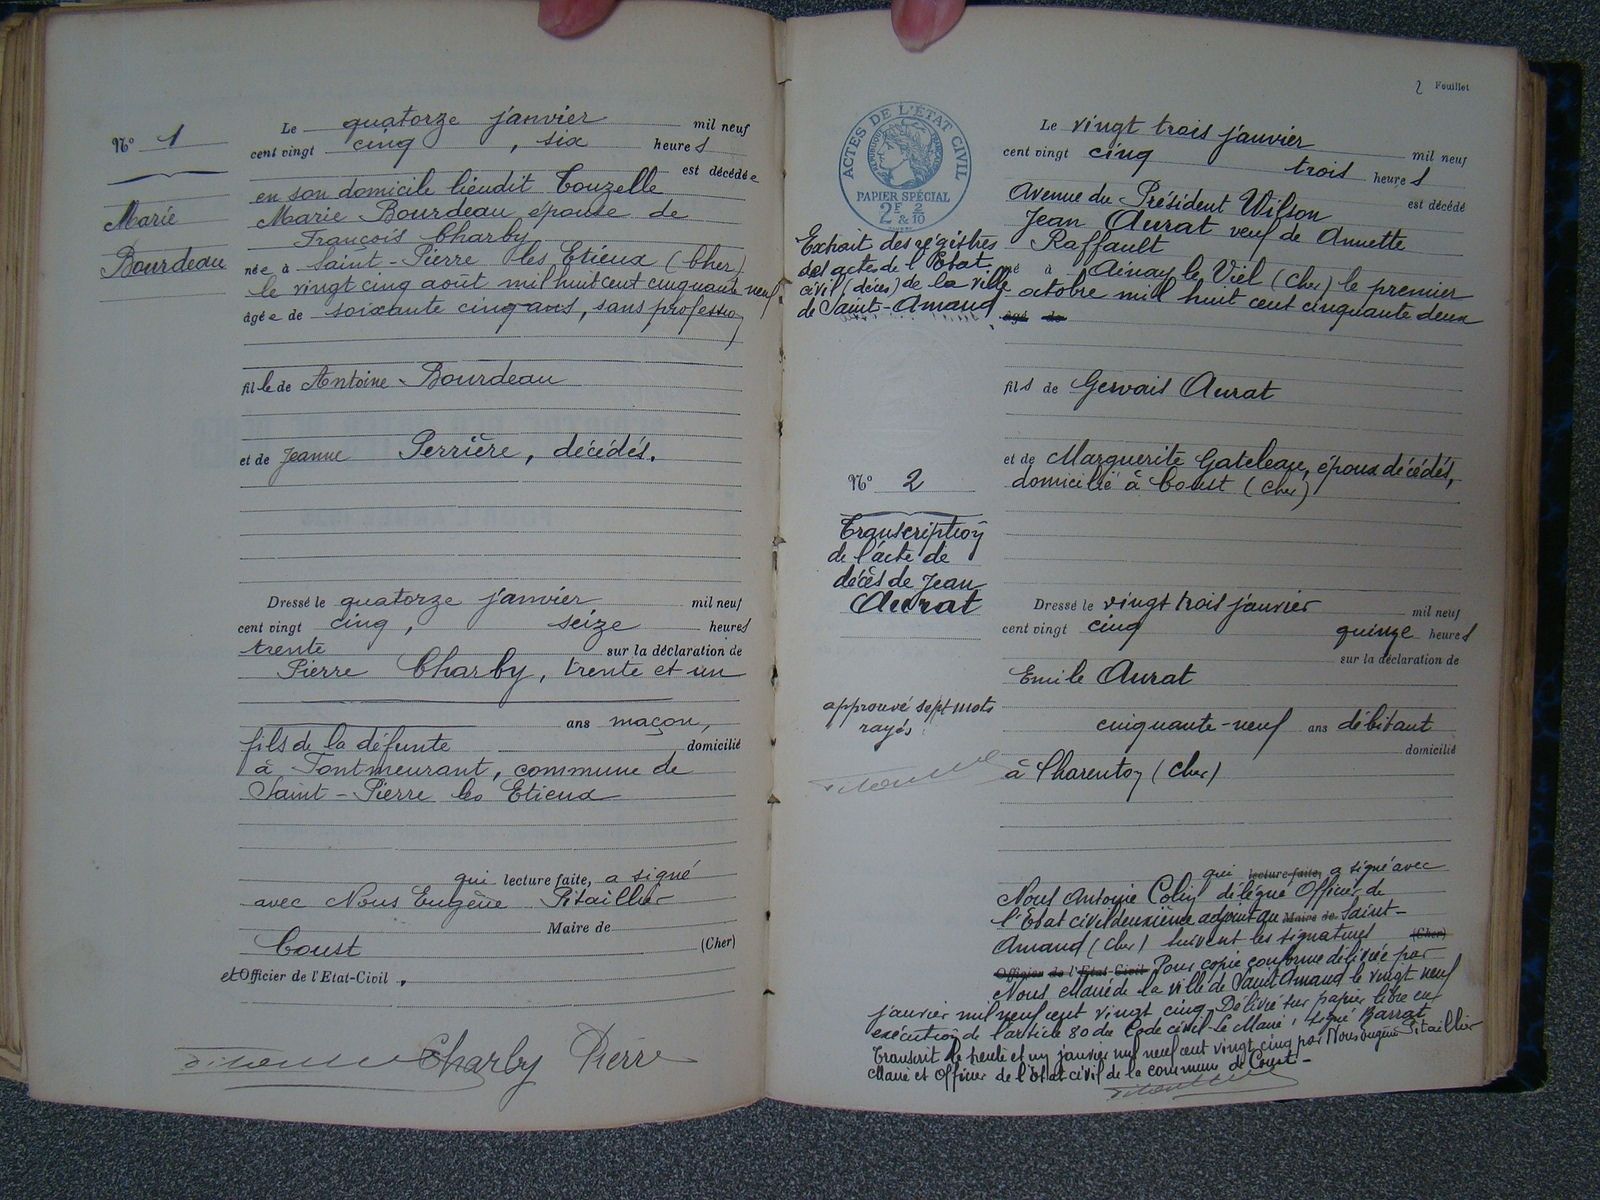 N° 1
Marie
Bourdeau
Le quatorze janvier mil neuf
cent vingt cinq, six heures
est décédée
en son domicile lieudit Touzelle
Marie Bourdeau épouse de
François Charby
née à Saint-Pierre les Etieux (Cher)
le vingt cinq août mil huit cent cinquante neuf
âgée de soixante cinq ans, sans profession
fille de Antoine Bourdeau
et de Jeanne Perrière, décédés.
Dressé le quatorze janvier mil neuf
cent vingt cinq, seize heures
trente sur la déclaration de
Pierre Charby, trente et un
ans maçon,
fils de la défunte domicilié
à Fontmeurant, commune de
Saint-Pierre les Etieux
qui lecture faite, a signé
avec Nous Eugène Pitaillier
Maire de
Coust (Cher)
et Officier de l'Etat-Civil.
Charby Pierre
2 Feuillet
ACTES DE L'ÉTAT CIVIL
PAPIER SPÉCIAL
2F & 2/10
Extrait des registres
des actes de l'Etat
civil (décès) de la ville
de Saint-Amand
N° 2
Transcription
de l'acte de
décès de Jean
Aurat
approuvé sept mots
rayés
Le vingt trois janvier mil neuf
cent vingt cinq trois heures
est décédé
Avenue du Président Wilson
Jean Aurat veuf de Annette
Raffault
né à Ainay le Viel (Cher) le premier
octobre mil huit cent cinquante deux
âgé de
fils de Gervais Aurat
et de Marguerite Gateleax, époux décédés,
domicilié à Coust (Cher)
Dressé le vingt trois janvier mil neuf
cent vingt cinq quinze heures
sur la déclaration de
Emile Aurat
cinquante-neuf ans débitant
domicilié
à Charenton (Cher)
qui lecture faite, a signé avec
Nous Antoine délégué Officier de
l'Etat civil deuxième adjoint au Maire de Saint-
Amand (Cher) suivent les signatures (Cher)
Officier de l'Etat-Civil Pour copie conforme délivrée par
Nous Maire de la ville de Saint Amand le vingt neuf
janvier mil neuf cent vingt cinq. Délivré sur papier libre en
exécution de l'article 80 du Code civil. Le Maire, signé Barrat
Transcrit le trente et un janvier mil neuf cent vingt cinq par Nous Eugène Pitaillier
Maire et Officier de l'état civil de la commune de Coust.-